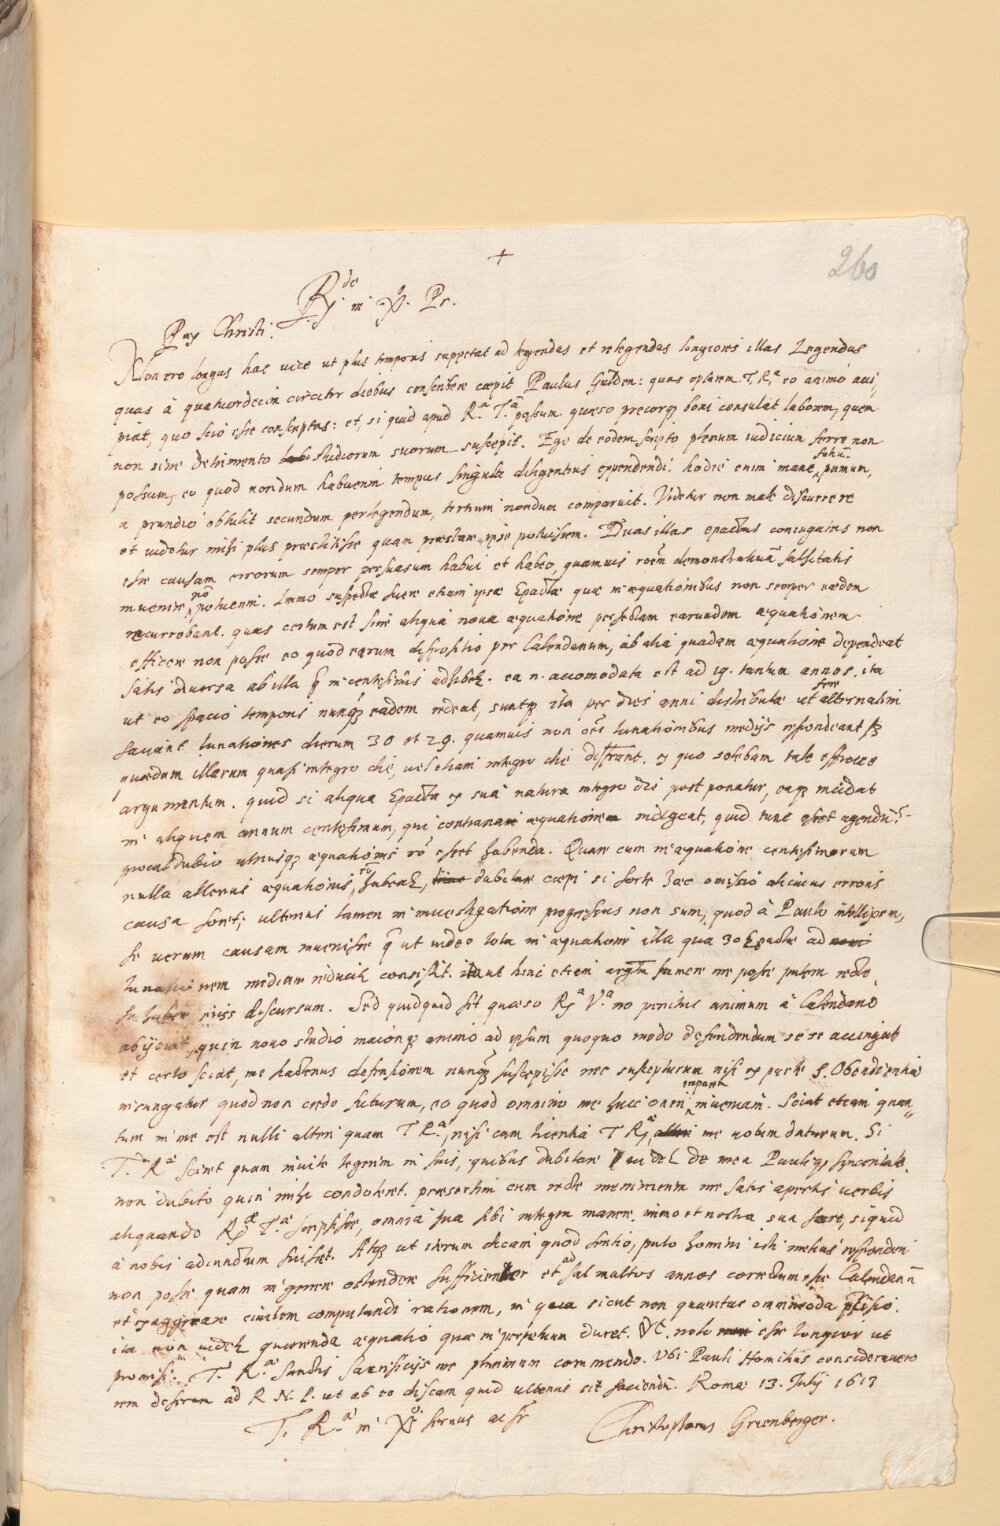 +
260
R.de in Xº. Pr.
Pax Christi.
Non ero longus hac vice ut plus temporis suppetat ad legendas et relegendas longiores illas Legendas
quas à quatuordecim circiter diebus conscribere cœpit Paulus Gulden: quas optarem T. Rª eo animo acci,
piat, quo scio esse conscriptas: et, si quid apud R.ª T.ª possum quæso precorq boni consulat laborem, quem
non sine detrimento studiorum suorum suscepit. Ego de eodem scripto plenum iudicium ferre non
possum, eo quod nondum habuerim tempus singula diligentius expendendi. hodie enim mane primum,
a prandio obtulit secundum perlegendum, tertium nondum comparuit. Videtur non male discurrere
et videtur mihi plus præstitisse quam præstare ipse potuissem. Duas illas epactas coniugatas non
esse causam errorum semper persuasum habui et habeo, quamvis roem demonstrativam falsitatis
invenire nō potuerim. Immo suspectæ fuere etiam ipsæ Epactæ quæ in æquationibus non semper eædem
recurrebant. quas certum est sine aliqua nova æquatione perfectam earundem æquationem
efficere non posse eo quod earum dispositio per Calendarium, ab alia quadam æquatione dependeat
satis diversa ab illa q in centesimis adhibet. ea n. accomodata est ad 19. tantum annos, ita
ut eo spacio temporis nunq eadem redeat, suntq ita per dies anni distributæ ut fere alternatim
faciant lunationes dierum 30 et 29. quamvis non oēs lunationibus medijs respondeant sq
quædam illarum quasi integro die, vel etiam integro die differant. ex quo solebam tale efficere
argumentum. quid si aliqua Epacta ex sua natura integro die post ponatur, eaq incidat
in aliquem annum centesimum, qui contrariam æquationem indigeat, quid tunc esset agendū?
procul dubio utriusq æquationis rō esset habenda. Quare cum in æquatione centesimorum
nulla alterius æquationis rō habeat, dubitare cœpi si forte hæc omissio alicuius erroris
causa foret; ulterius tamen in investigatione progressus non sum, quod à Paulo intellexerim,
se veram causam invenisse q ut video tota in æquatione illa qua 30 Epactæ ad
lunationem mediam reducit consistit. ut hinc etiam argtm sumere me posse putem recte
se habere eius discursum. Sed quidquid sit quæso R.ª V.ª nō penitus animum à Calendario
abijciat, quin novo studio maioriq animo ad ipsum quoquo modo defendendum se se accingat
et certo sciat, me hactenus defensorem nunq suscepisse nec suscepturum nisi ex parte S. Obendienhiæ
iniungatur quod non credo futurum, eo quod omnino me huic oneri imparem inveniam. Sciat etiam quan=
tum in me est nulli alteri quam T Rª, nisi cum licentia T Rª me votum daturum. Si
T. Rª sciret quam invite legerim in suis, quibus dubitare videt de mea Pauliq synceritate,
non dubito quin mihi condoleret. præsertim cum recte meminerim me satis apertis verbis
aliquando Rª T.ª scripsisse, omnia sua sibi integra manere, immo et nostra sua fore, siquid
à nobis adinventum fuisset. Atq ut iterum dicam quod sentio, puto homini isti melius responderi
non posse quam in genere ostendere sufficienter et ad sat multos annos correctum esse Calendariū
et exaggerare civilem computandi rationem, in qua sicut non quæritur omnimoda præcisio.
ita non videt quærenda æquatio quæ in perpetuum duret. &c. nolo esse longior ut
promisi. T. Rª. sanctis sacrificijs me plurimum commendo. Ubi Pauli Homilias consideravero
rem deferam ad R. N. P. ut ab eo discam quid ulterius sit faciendū. Romæ 13. Julij 1617
T. Rª in Xº servus ac fr
Christophorus Grienberger.